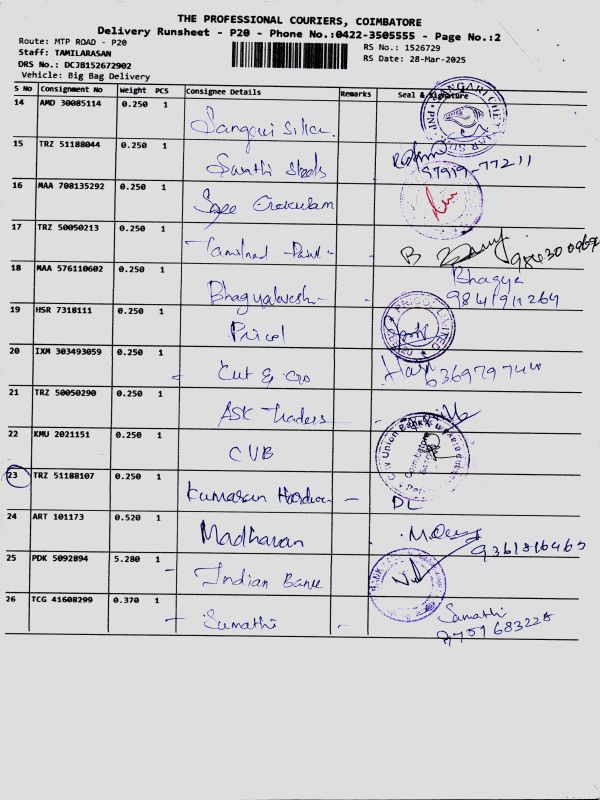 THE PROFESSIONAL COURIERS, COIMBATORE
Delivery Runsheet - P20 - Phone No.:0422-3505555 - Page No.:2
Route: MTP ROAD - P20
RS No.: 1526729
Staff: TAMILARASAN
RS Date: 28-Mar-2025
DRS No.: DCJB152672902
Vehicle: Big Bag Delivery
S No Consignment No Weight PCS Consignee Details Remarks Seal & Signature
14 AMD 30085114 0.250 1
15 TRZ 51188044 0.250 1 Swathi Steels 97919-77211
16 MAA 708135292 0.250 1 Sree
17 TRZ 50050213 0.250 1 Tamilnad Paint - B
18 MAA 576110602 0.250 1 - Bhagya 9841911264
19 HSR 7318111 0.250 1 Pricol PRICOL LIMITED
20 IXM 303493059 0.250 1 - Cut & Go - Hari
21 TRZ 50050290 0.250 1 ASK Traders -
22 KMU 2021151 0.250 1 CUB City Union Bank
23 TRZ 51188107 0.250 1 Kumaran - DL
24 ART 101173 0.520 1 Madhavan
25 PDK 5092894 5.280 1 - Indian Bank
26 TCG 41608299 0.370 1 - Sumathi -